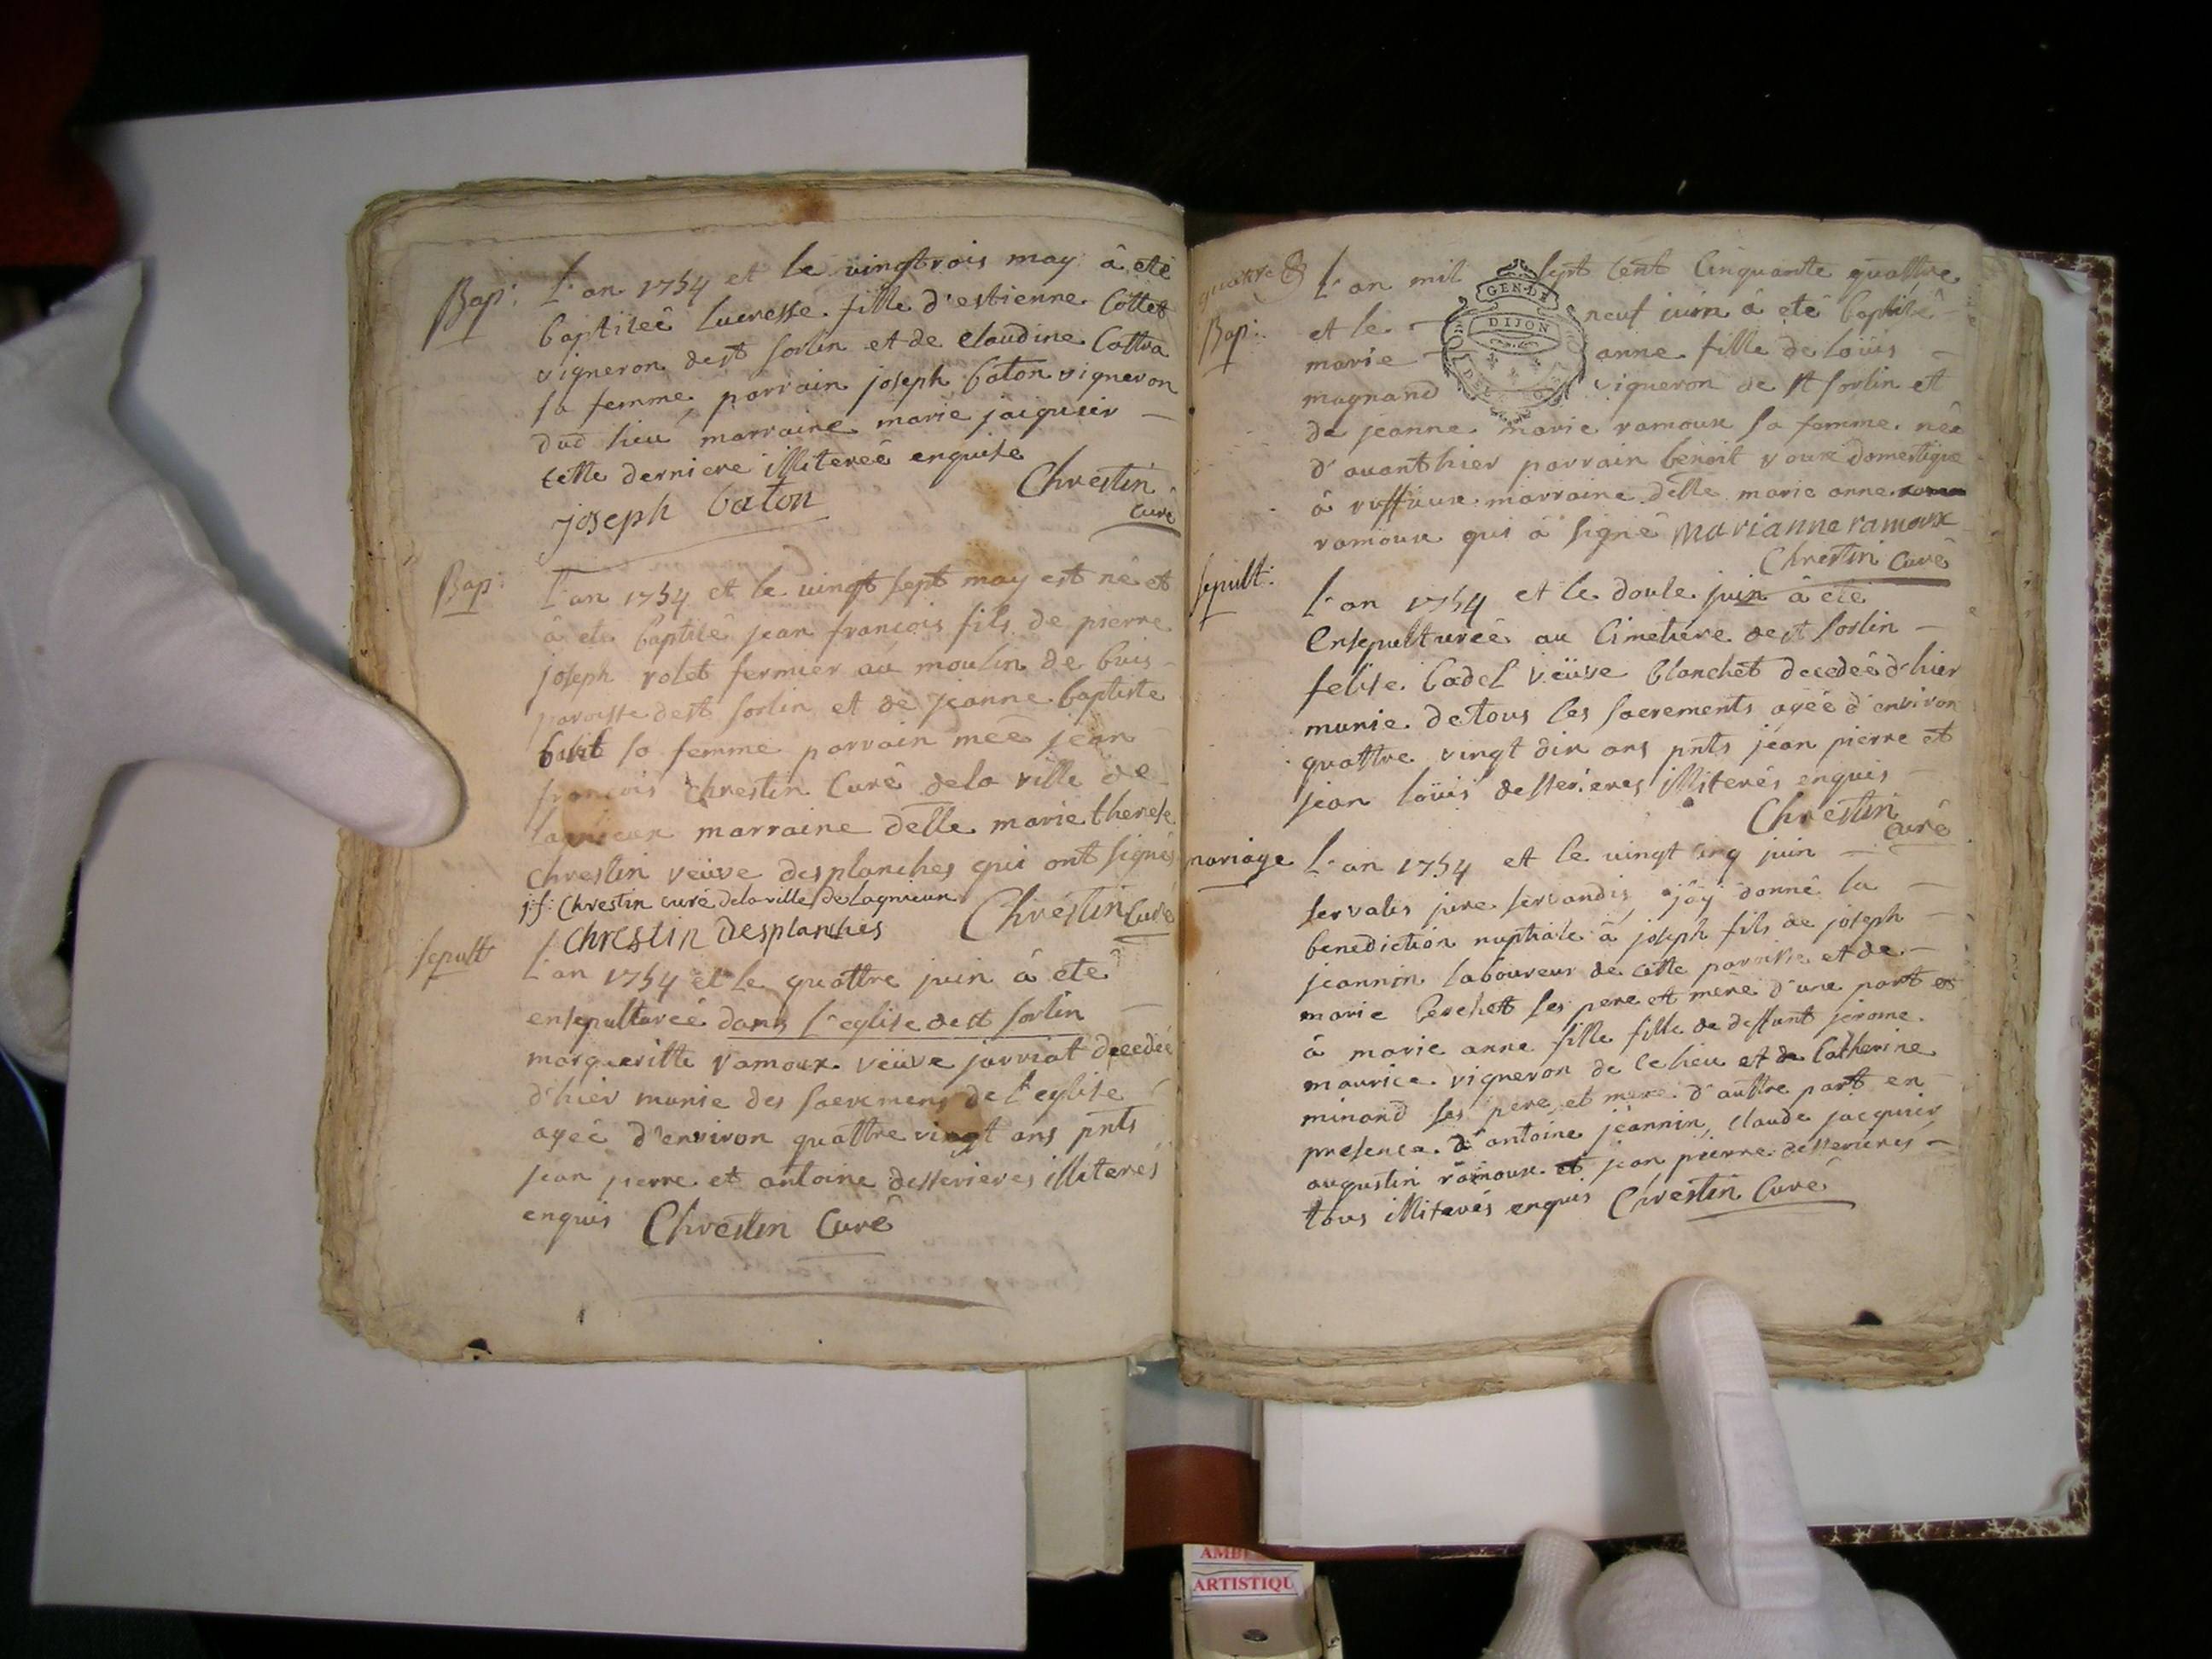 Bap: L'an 1754 et le vingtrois may â eté
baptiseé lucresse fille d'estienne Cottet
vigneron de st sorlin et de claudine Cattra
sa femme, parrain joseph baton vigneron
dud lieu marraine marie jacquier
cette derniere illitereé enquise
Chrestin
joseph baton
curé
Bap: L'an 1754 et le vingt sept may est né et
â eté baptisé jean francois fils de pierre
joseph rolet fermier au moulin de buis
paroisse de st sorlin et de jeanne baptiste
sa femme parrain jean
francois chrestin Curé de la ville de
lagnieux marraine delle marie therese
chrestin veüve desplanches qui ont signés
j: f: Chrestin curé de la ville de Lagnieux
Chrestin Curé
chrestin desplanches
sepult L'an 1754 et le quattre juin â eté
ensepultureé dans l'eglise de st sorlin
margueritte ramoux veüve jarriat decedeé
d'hier munie des sacremens de l'eglise
ageé d'environ quattre vingt ans pnts
jean pierre et antoine desserieres illiterés
enquis Chrestin Curé
quatre
L'an mil sept cent cinquante quattre
GEN·DE
DIJON
Bap: et le neuf juin â eté baptisé
marie anne fille de loüis
magnand vigneron de st sorlin et
de jeanne marie ramoux sa femme neé
d'auanthier parrain benoit roux domestique
â ruffieux marraine delle marie anne
ramoux qui â signé marianne ramoux
Chrestin Curé
sepult: L'an 1754 et le douse juin â eté
ensepultureé au Cimetiere de st sorlin
felise Cadel veüve blanchet decedeé d'hier
munie de tous les sacrements ageé d'environ
quattre vingt dix ans pnts jean pierre et
jean loüis desserieres illiterés enquis
Chrestin
curé
mariage L'an 1754 et le vingt cinq juin
servatis jure servandis, j'ay donné la
benediction nuptiale â joseph fils de joseph
jeannin laboureur de cette paroisse et de
marie berchet ses pere et mere d'une part et
â marie anne fille fille de deffunt jerome
maurice vigneron de ce lieu et de Catherine
minand ses pere et mere d'auttre part en
presence d'antoine jeannin, claude jacquier
augustin ramoux et jean pierre desserieres
tous illiterés enquis Chrestin Curé
ARTISTIQU